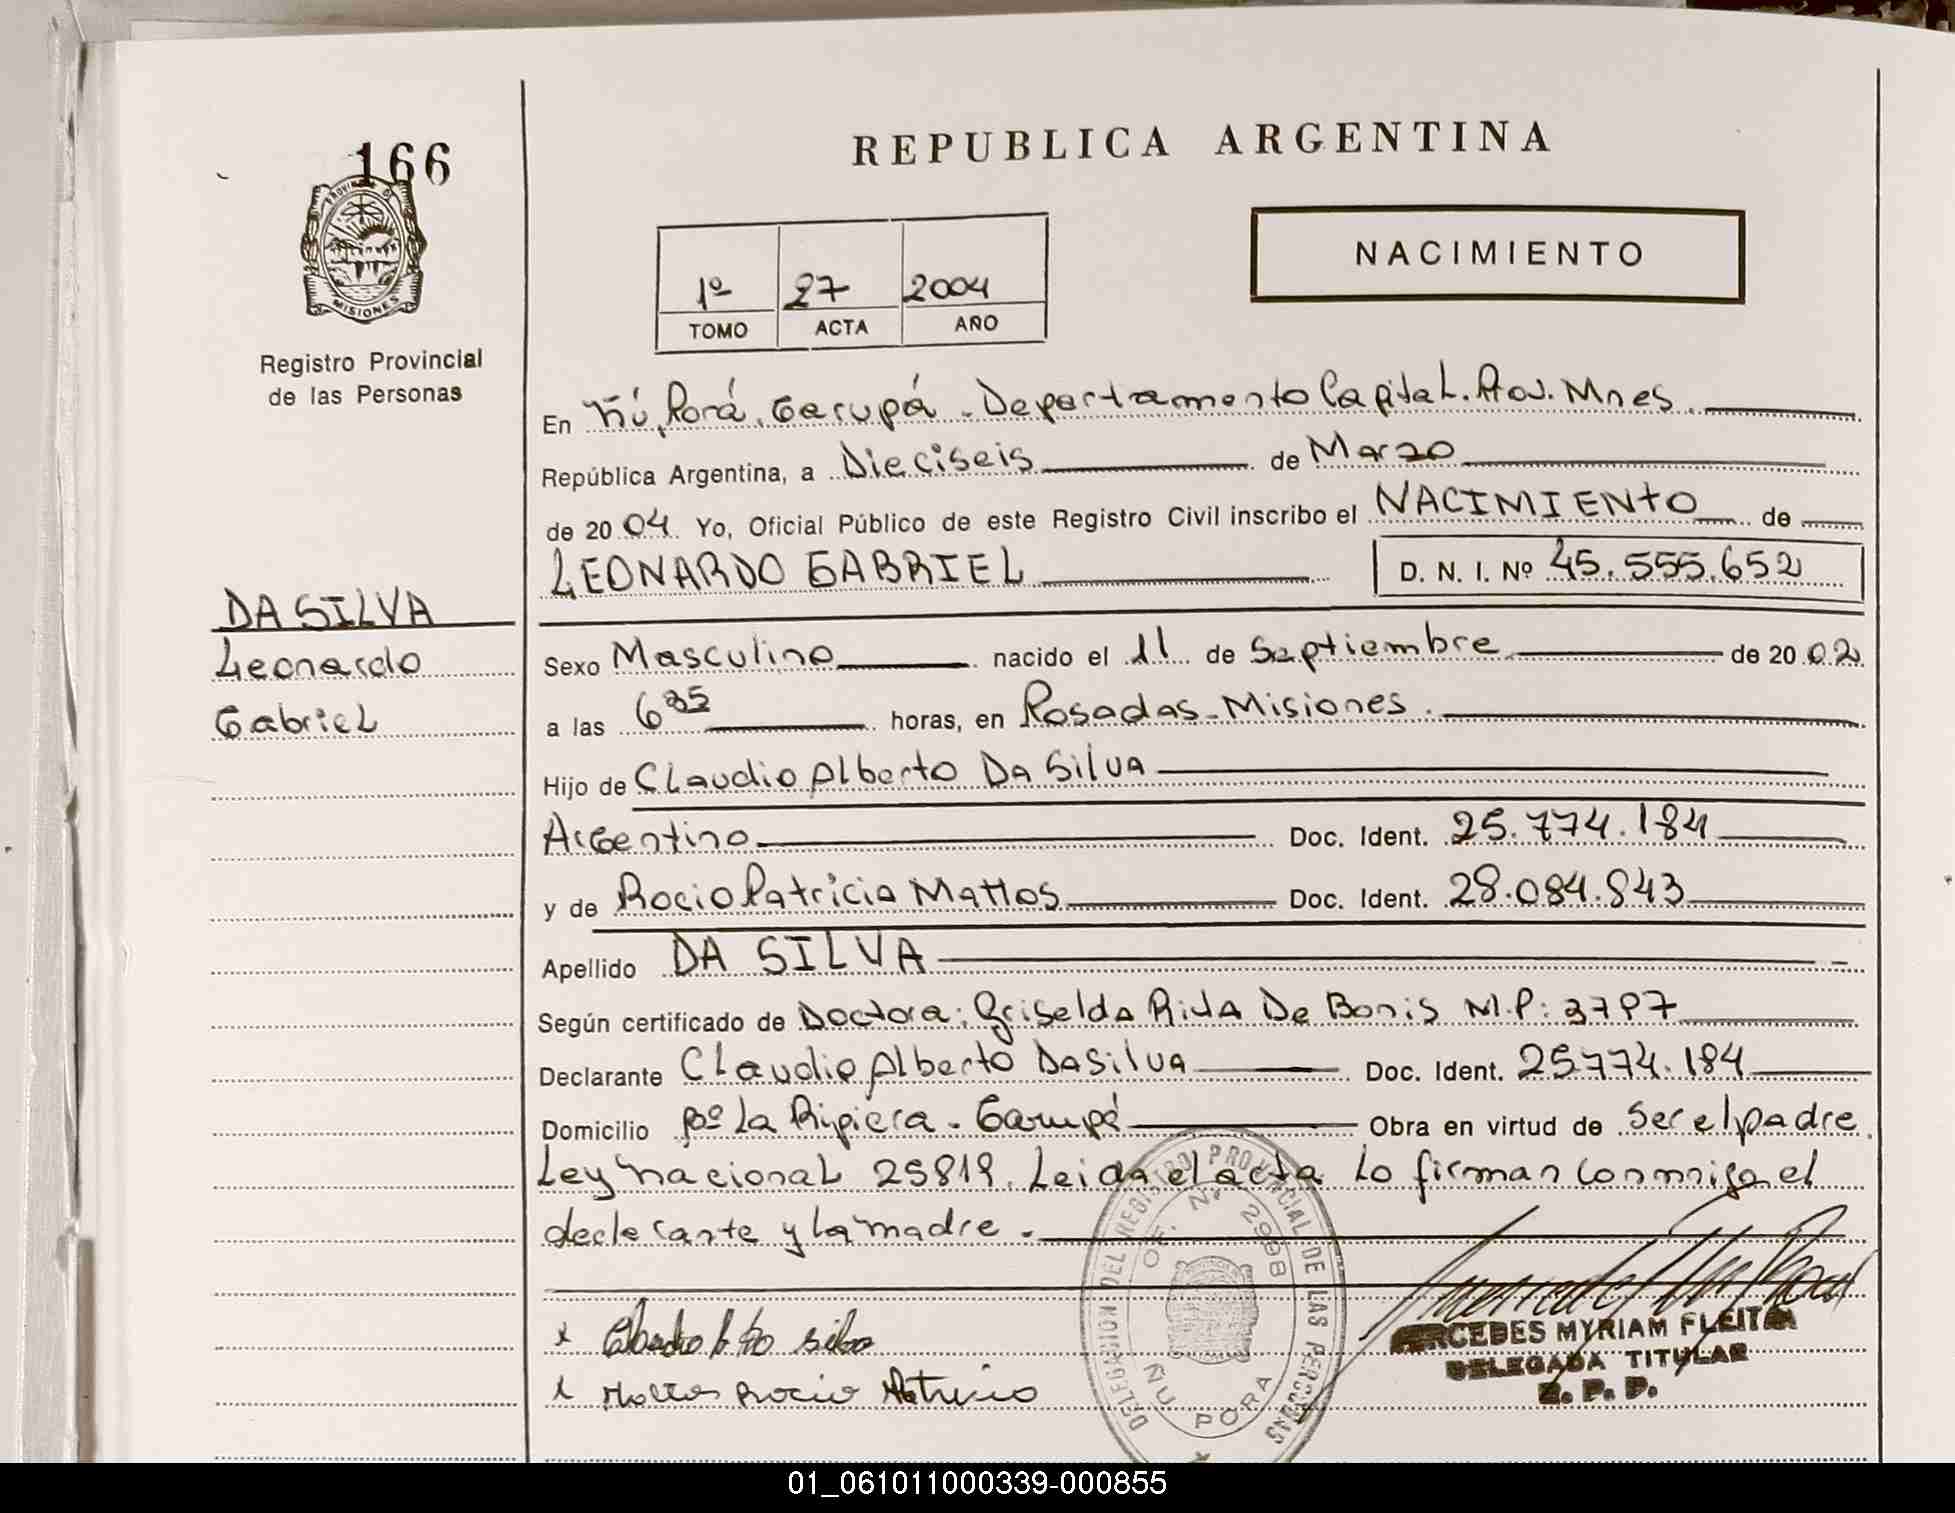 166
PROVINCIA DE
MISIONES
Registro Provincial
de las Personas
REPUBLICA ARGENTINA
NACIMIENTO
1º 27 2004
TOMO ACTA AÑO
En Ñú Porá, Garupá - Departamento Capital. Prov. Mnes
República Argentina, a Dieciseis de Marzo
de 20 04 Yo, Oficial Público de este Registro Civil inscribo el NACIMIENTO de
LEONARDO GABRIEL D. N. I. Nº 45.555.652
DA SILVA
Leonardo
Gabriel
Sexo Masculino nacido el 11 de Septiembre de 20 02
a las 6 35 horas, en Posadas - Misiones.
Hijo de Claudio Alberto Da Silva
Argentino Doc. Ident. 25.774.184
y de Rocio Patricia Mattos Doc. Ident. 28.084.843
Apellido DA SILVA
Según certificado de Doctora: Griselda Rita De Bonis M.P: 3797
Declarante Claudio Alberto Da Silva Doc. Ident. 25774.184
Domicilio Bº La Ripiera - Garupá Obra en virtud de Ser el padre.
Ley Nacional 25819. Leida el acta Lo firman conmigo el
declarante y la madre.
DELEGACION DEL REGISTRO PROVINCIAL DE LAS PERSONAS
OF. Nº 2998
ÑU PORA
x
x Mattos Rocio Patricia
MERCEDES MYRIAM FLEITA
DELEGADA TITULAR
R. P. P.
01_061011000339-000855